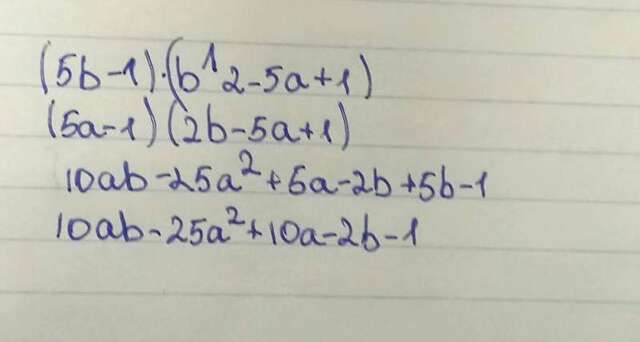 (5b-1)·(b¹2-5a+1)
(5a-1)(2b-5a+1)
10ab-25a²+5a-2b+5b-1
10ab-25a²+10a-2b-1